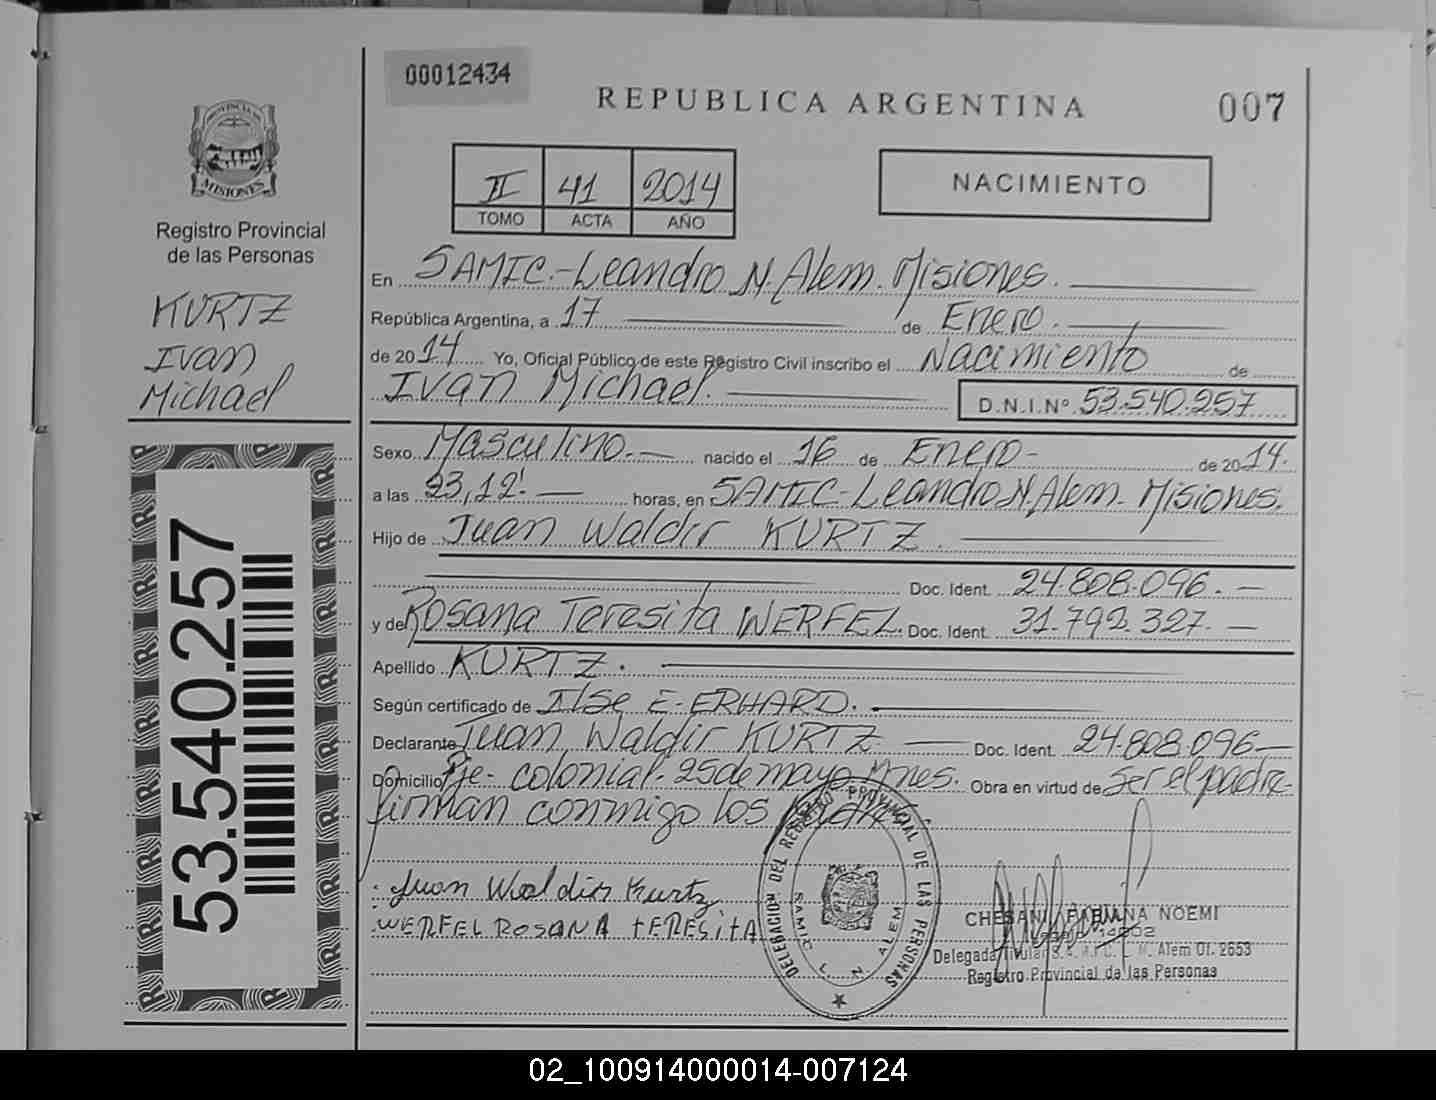 00012434
REPUBLICA ARGENTINA
007
PROVINCIA DE
MISIONES
Registro Provincial
de las Personas
KURTZ
Ivan
Michael
II 41 2014
TOMO ACTA AÑO
NACIMIENTO
En SAMIC.-Leandro N. Alem. Misiones.
República Argentina, a 17 de Enero.
de 2014 Yo, Oficial Público de este Registro Civil inscribo el Nacimiento de
Ivan Michael. D.N.I.Nº 53.540.257
Sexo Masculino.- nacido el 16 de Enero- de 2014.
a las 23,12'.- horas, en SAMIC-Leandro N. Alem. Misiones.
Hijo de Juan Waldir KURTZ.
Doc. Ident. 24.808.096.-
y de Rosana Teresita WERFEL. Doc. Ident. 31.792.327.-
Apellido KURTZ.
Según certificado de Ilse E. ERHARD.
Declarante Juan Waldir KURTZ - Doc. Ident. 24.808.096-
Domicilio Pje- colonial. 25 de mayo Mnes. Obra en virtud de Ser el padre-
firman conmigo los
Juan Waldir Kurtz
WERFEL ROSANA TERESITA
53.540.257
DELEGACION DEL REGISTRO PROVINCIAL DE LAS PERSONAS
SAMIC L N ALEM
CHESANI, FABIANA NOEMI
Delegada Titular S.A.M.I.C. L. N. Alem Of. 2653
Registro Provincial de las Personas
02_100914000014-007124